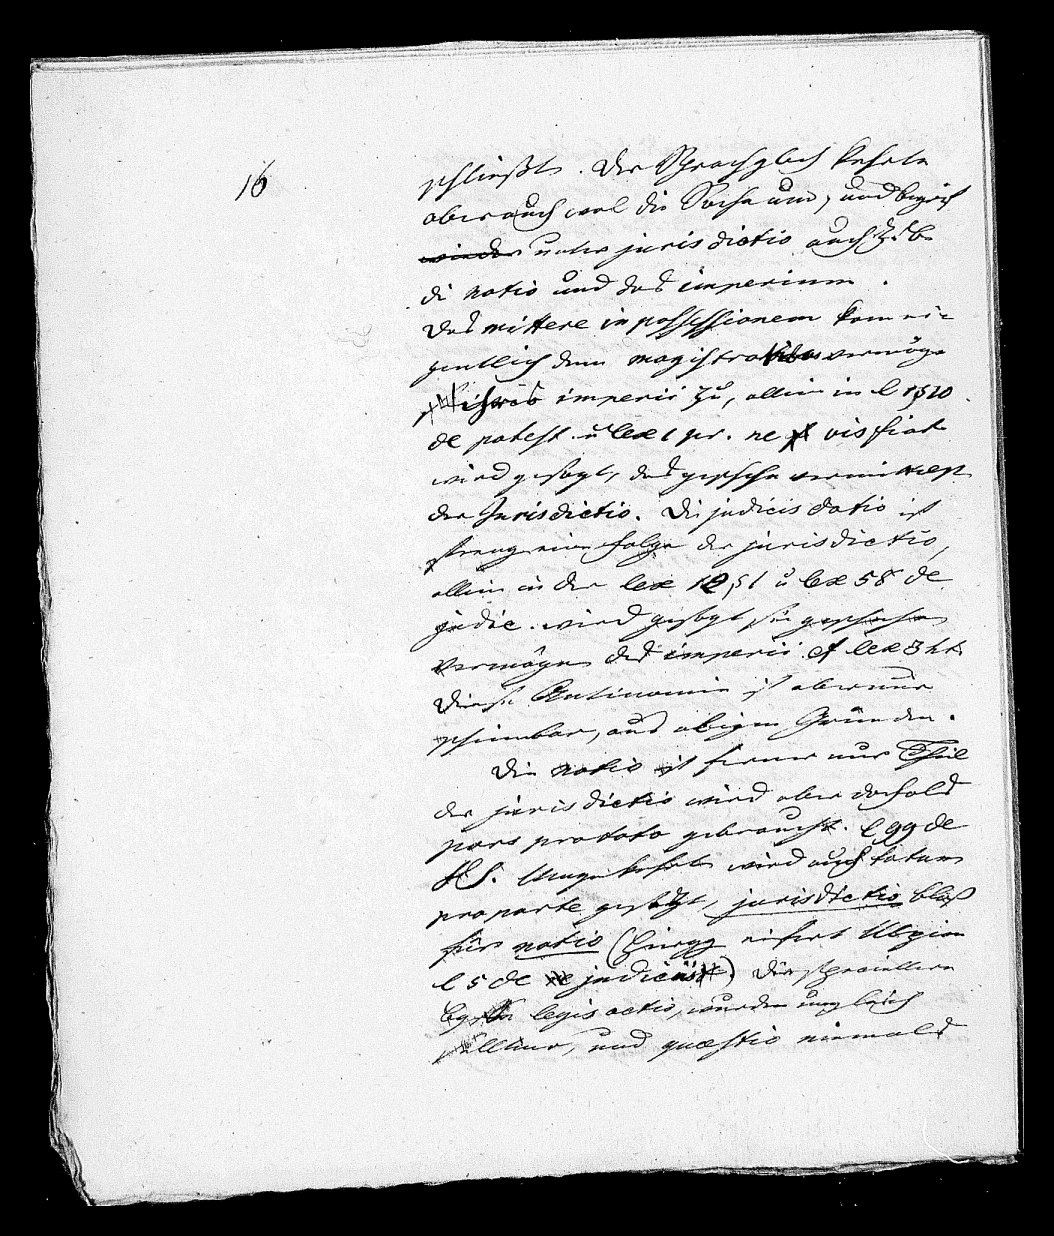 16
schließt. Der Sprachgbch kehrte
aber auch wol die Sache um, und begrif
wieder unter jurisdictio auch z. B.
di notio und das imperium.
Das mittere in possessionem kam ei-
gentlich dem magistratus vermöge
ihres imperii zu, allein in l 1
de potest. u lex 1 pr. ne vis fiat
wird gesagt, das geschehe vermittelst
der Jurisdictio. Die judicis datio ist
streng eine Folge der jurisdictio,
allein in der lex 12 § 1 u lex 58 de
judic. wird gesagt sie geschehe
vermöge des imperii. cf lex 3 h. t.
Diese Antinomie ist aber nur
scheinbar, aus obigen Gründen.
Die notio ist ferner nur Theil
der jurisdictio wird aber doch als
pars pro tota gebraucht. l 99 de
V S. Umgekehrt wird auch totum
pro parte gesetzt, jurisdictio bloß
für notio (hieg eifert Ulpian
l 5 de judiciis). Die speciellern
legis actio, wurden ungleich
seltner, und quaestio niemals